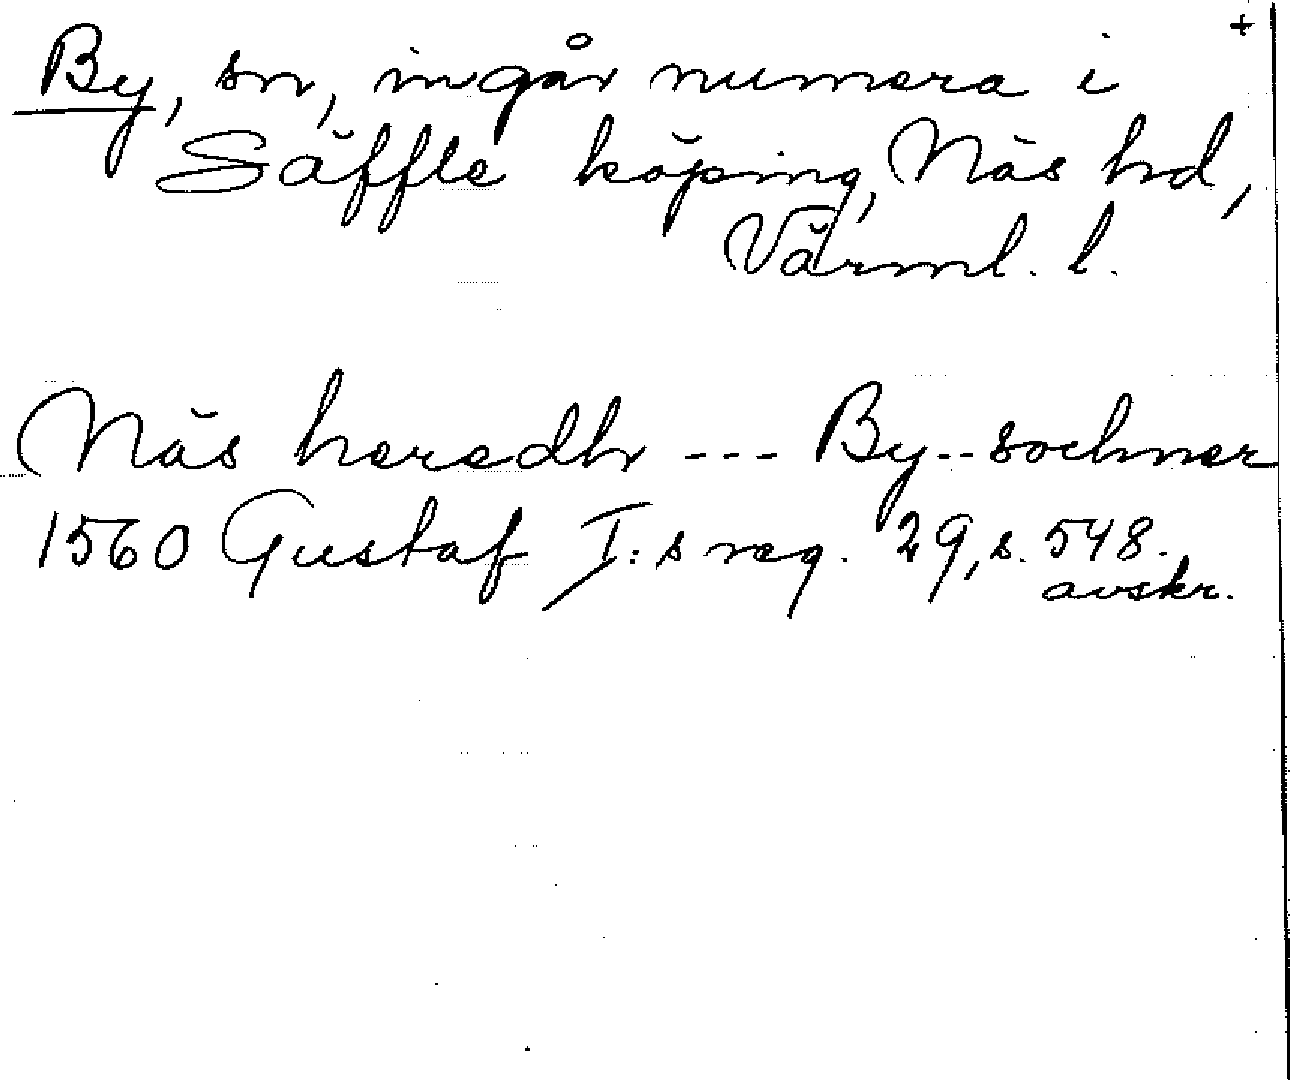 +
By, sn, ingår numera i
Säffle köping, Näs hd,
Värml. l.
Näs heredh --- By -- sochner
1560 Gustaf I:s reg. 29, s. 548.
avskr.